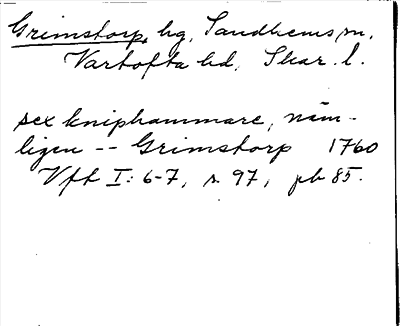 Grimstorp, hg, Sandhems sn,
Vartofta hd, Skar. l.
sex kniphammare, näm-
ligen -- Grimstorp 1760
Vft I: 6-7, s. 97, pb 85.